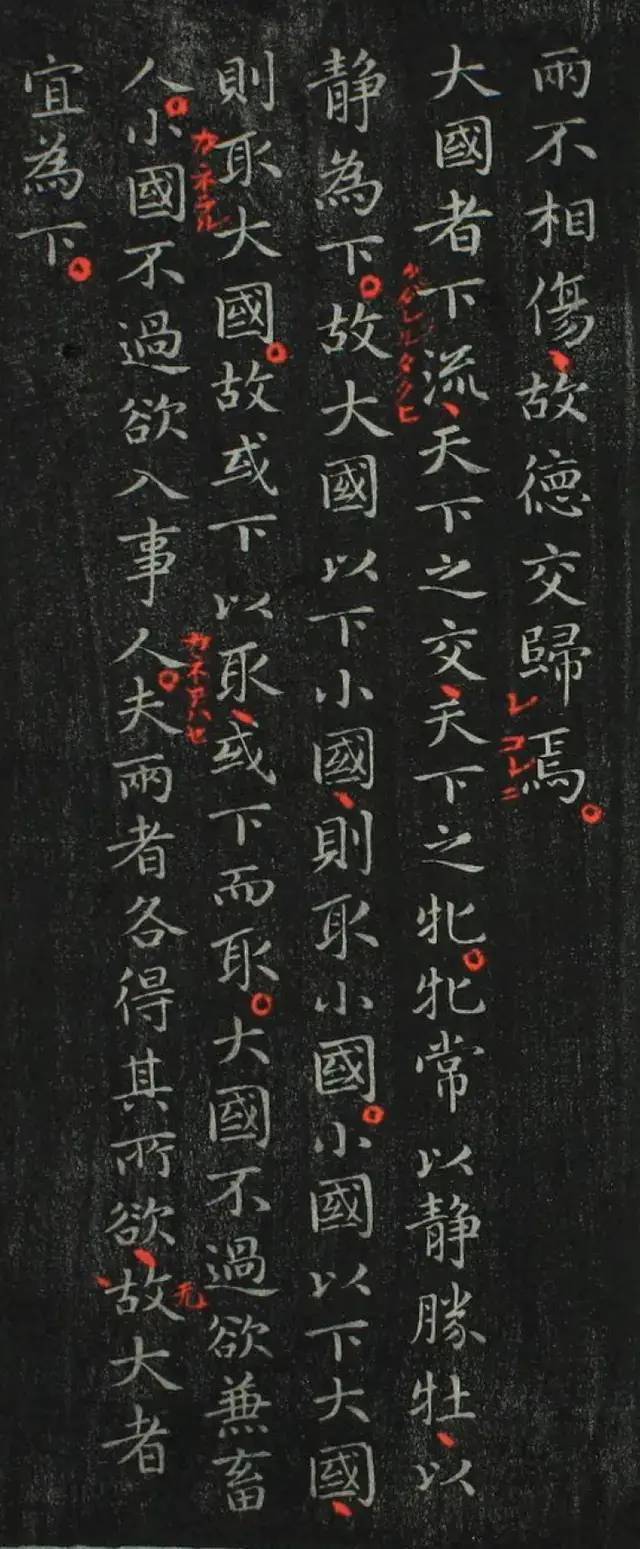 兩不相傷、故德交歸焉。
大國者下流、天下之交、天下之牝。牝常以静勝牡、以
静為下。故大國以下小國、則取小國。小國以下大國、
則取大國。故或下以取、或下而取。大國不過欲兼畜
人。小國不過欲入事人。夫兩者各得其所欲、故大者
宜為下。
レ
コレニ
カネラル
カネアハセ
无